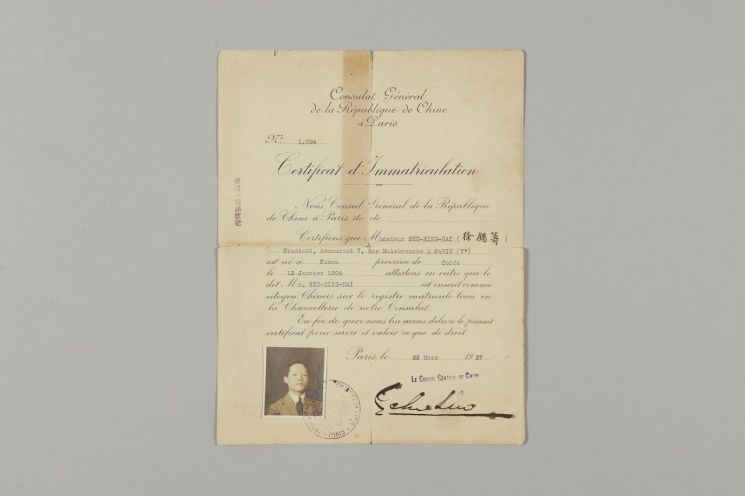 Consulat Général
de la République de Chine
à Paris
N° 1.094
Certificat d'Immatriculation
Nous, Consul Général de la République
de Chine à Paris
Certifions que Monsieur SEU-RING-HAI (徐)
Etudiant, demeurant 7, Rue Malebranche à PARIS (V°)
est né à Fusan province de Corée
le 12 Janvier 1904 attestons en outre que le
dit Mr. SEU-RING-HAI est inscrit comme
citoyen Chinois sur le registre matricule tenu en
la Chancellerie de notre Consulat.
En foi de quoi nous lui avons délivré le présent
certificat pour servir et valoir ce que de droit
Paris, le 23 Mars 1937
LE CONSUL GÉNÉRAL DE CHINE
PARIS